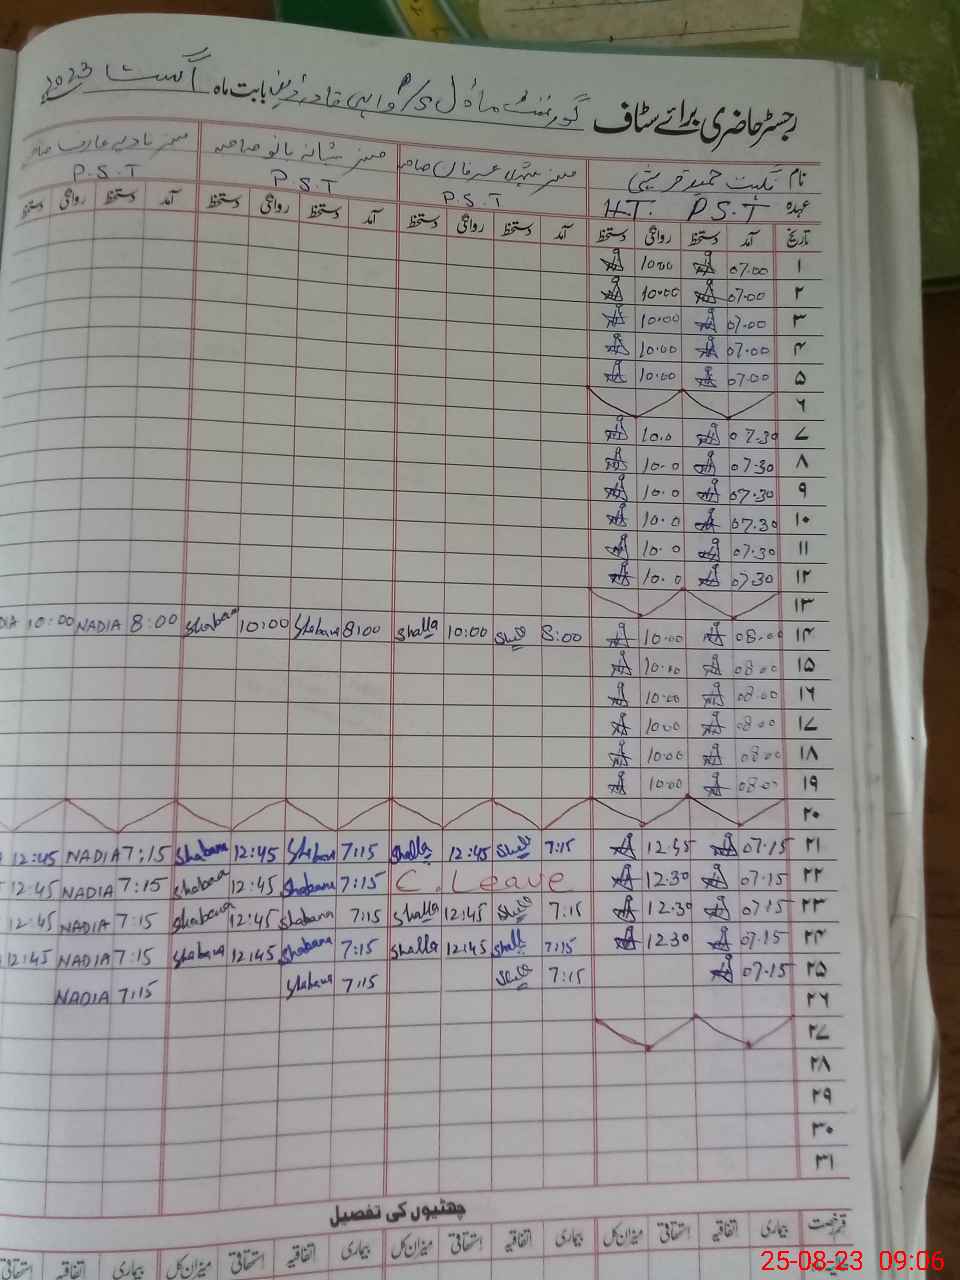 رجسٹر حاضری برائے سٹاف گورنمنٹ ماڈل P/S واہی قادر بابت ماہ اگست 2023
نام نگہت حمید قریشی مسز شہلا عرفان صاحبہ مسز شبانہ بانو صاحبہ مسز نادیہ عارف صاحبہ
عہدہ P.S.T H.T. P.S.T P.S.T P.S.T
تاریخ آمد دستخط روانگی دستخط آمد دستخط روانگی دستخط آمد دستخط روانگی دستخط آمد دستخط روانگی دستخط
۱ 07.00 10.00
۲ 07.00 10.00
۳ 07.00 10.00
۴ 07.00 10.00
۵ 07.00 10.00
۶
۷ 07.30 10.0
۸ 07.30 10.0
۹ 07.30 10.0
۱۰ 07.30 10.0
۱۱ 07.30 10.0
۱۲ 07.30 10.0
۱۳
۱۴ 08.00 10.00 8:00 10:00 Shalla 8:00 Shabana 10:00 Shabana 8:00 NADIA 10:00 DIA
۱۵ 08.00 10.00
۱۶ 08.00 10.00
۱۷ 08.00 10.00
۱۸ 08.00 10.00
۱۹ 08.00 10.00
۲۰
۲۱ 07.15 12.45 7:15 12:45 Shalla 7:15 Shabana 12:45 Shabana 7:15 NADIA 12:45
۲۲ 07.15 12.30 C. Leave 7:15 Shabana 12:45 Shabana 7:15 NADIA 12:45
۲۳ 07.15 12.30 7:15 12:45 Shalla 7:15 Shabana 12:45 Shabana 7:15 NADIA 12:45
۲۴ 07.15 12.30 7:15 Shalla 12:45 Shalla 7:15 Shabana 12:45 Shabana 7:15 NADIA 12:45
۲۵ 07.15 7:15 7:15 Shabana 7:15 NADIA
۲۶
۲۷
۲۸
۲۹
۳۰
۳۱
چھٹیوں کی تفصیل
قسم رخصت بیماری اتفاقیہ استحقاقی میزان کل بیماری اتفاقیہ استحقاقی میزان کل بیماری اتفاقیہ استحقاقی میزان کل بیماری اتفاقیہ استحقاقی
25-08-23 09:06